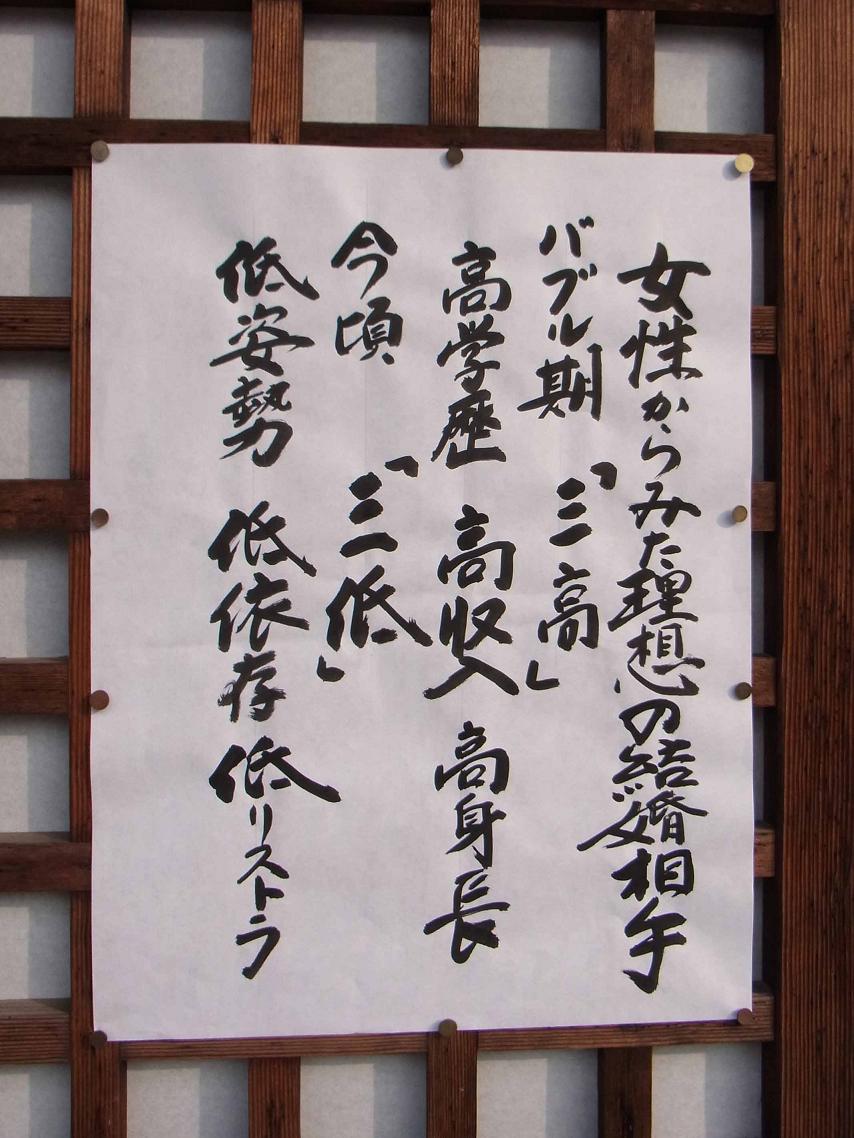 女性からみた理想の結婚相手
バブル期「三高」
高学歴 高収入 高身長
今頃「三低」
低姿勢 低依存 低リストラ